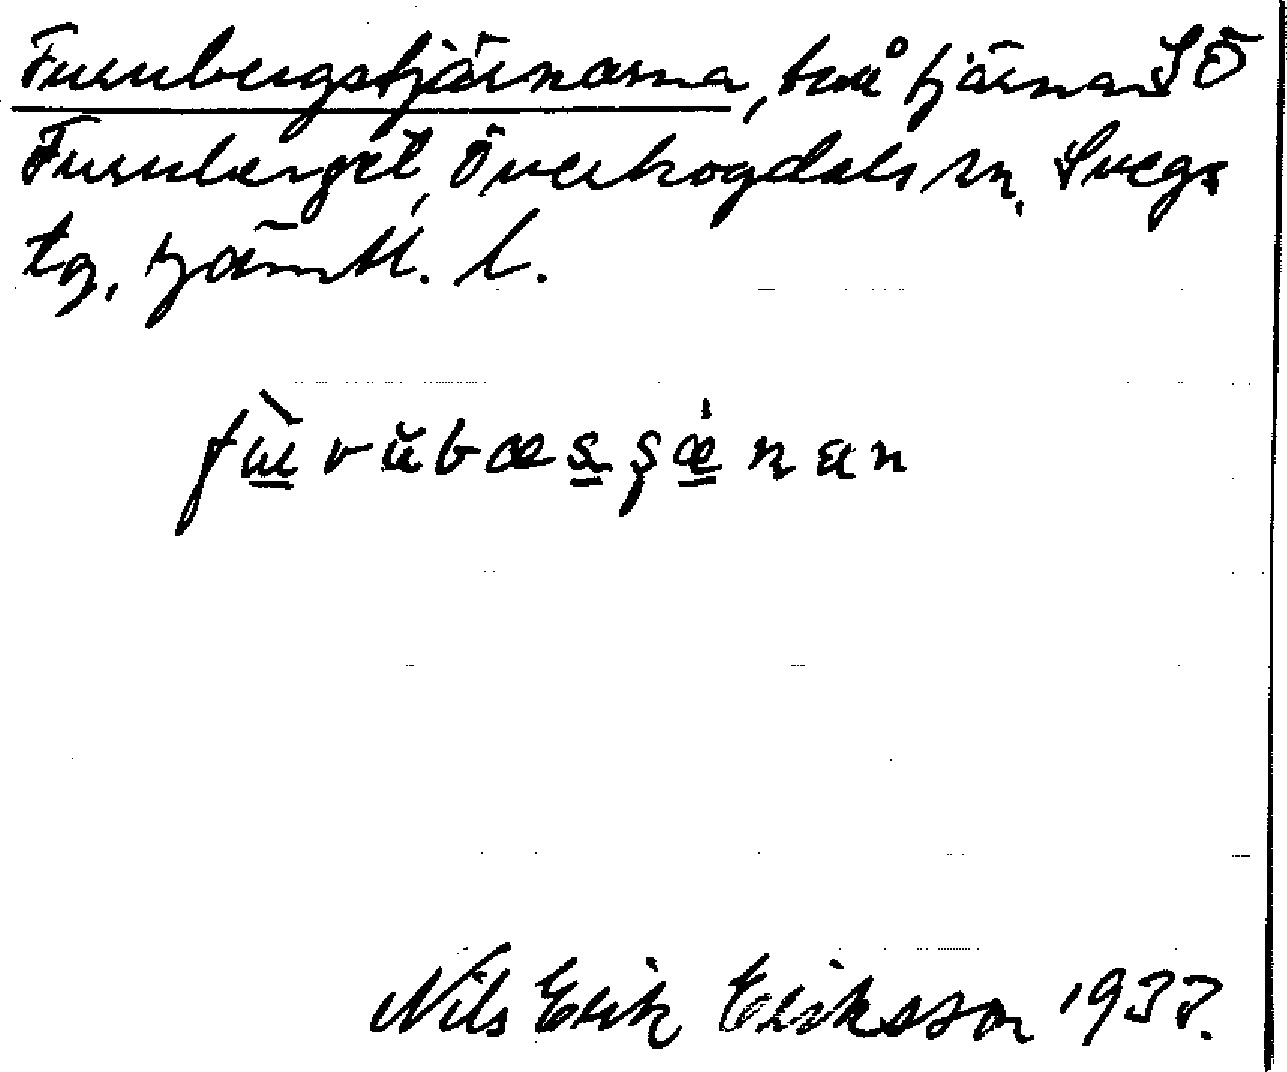 Furubergstjärnarna, två tjärnar SÖ
Furuberget, Överhogdals sn, Svegs
tg, Jämtl. l.
fù̲rŭbæs̲şǽ̲nan
Nils Erik Eriksson 1937.